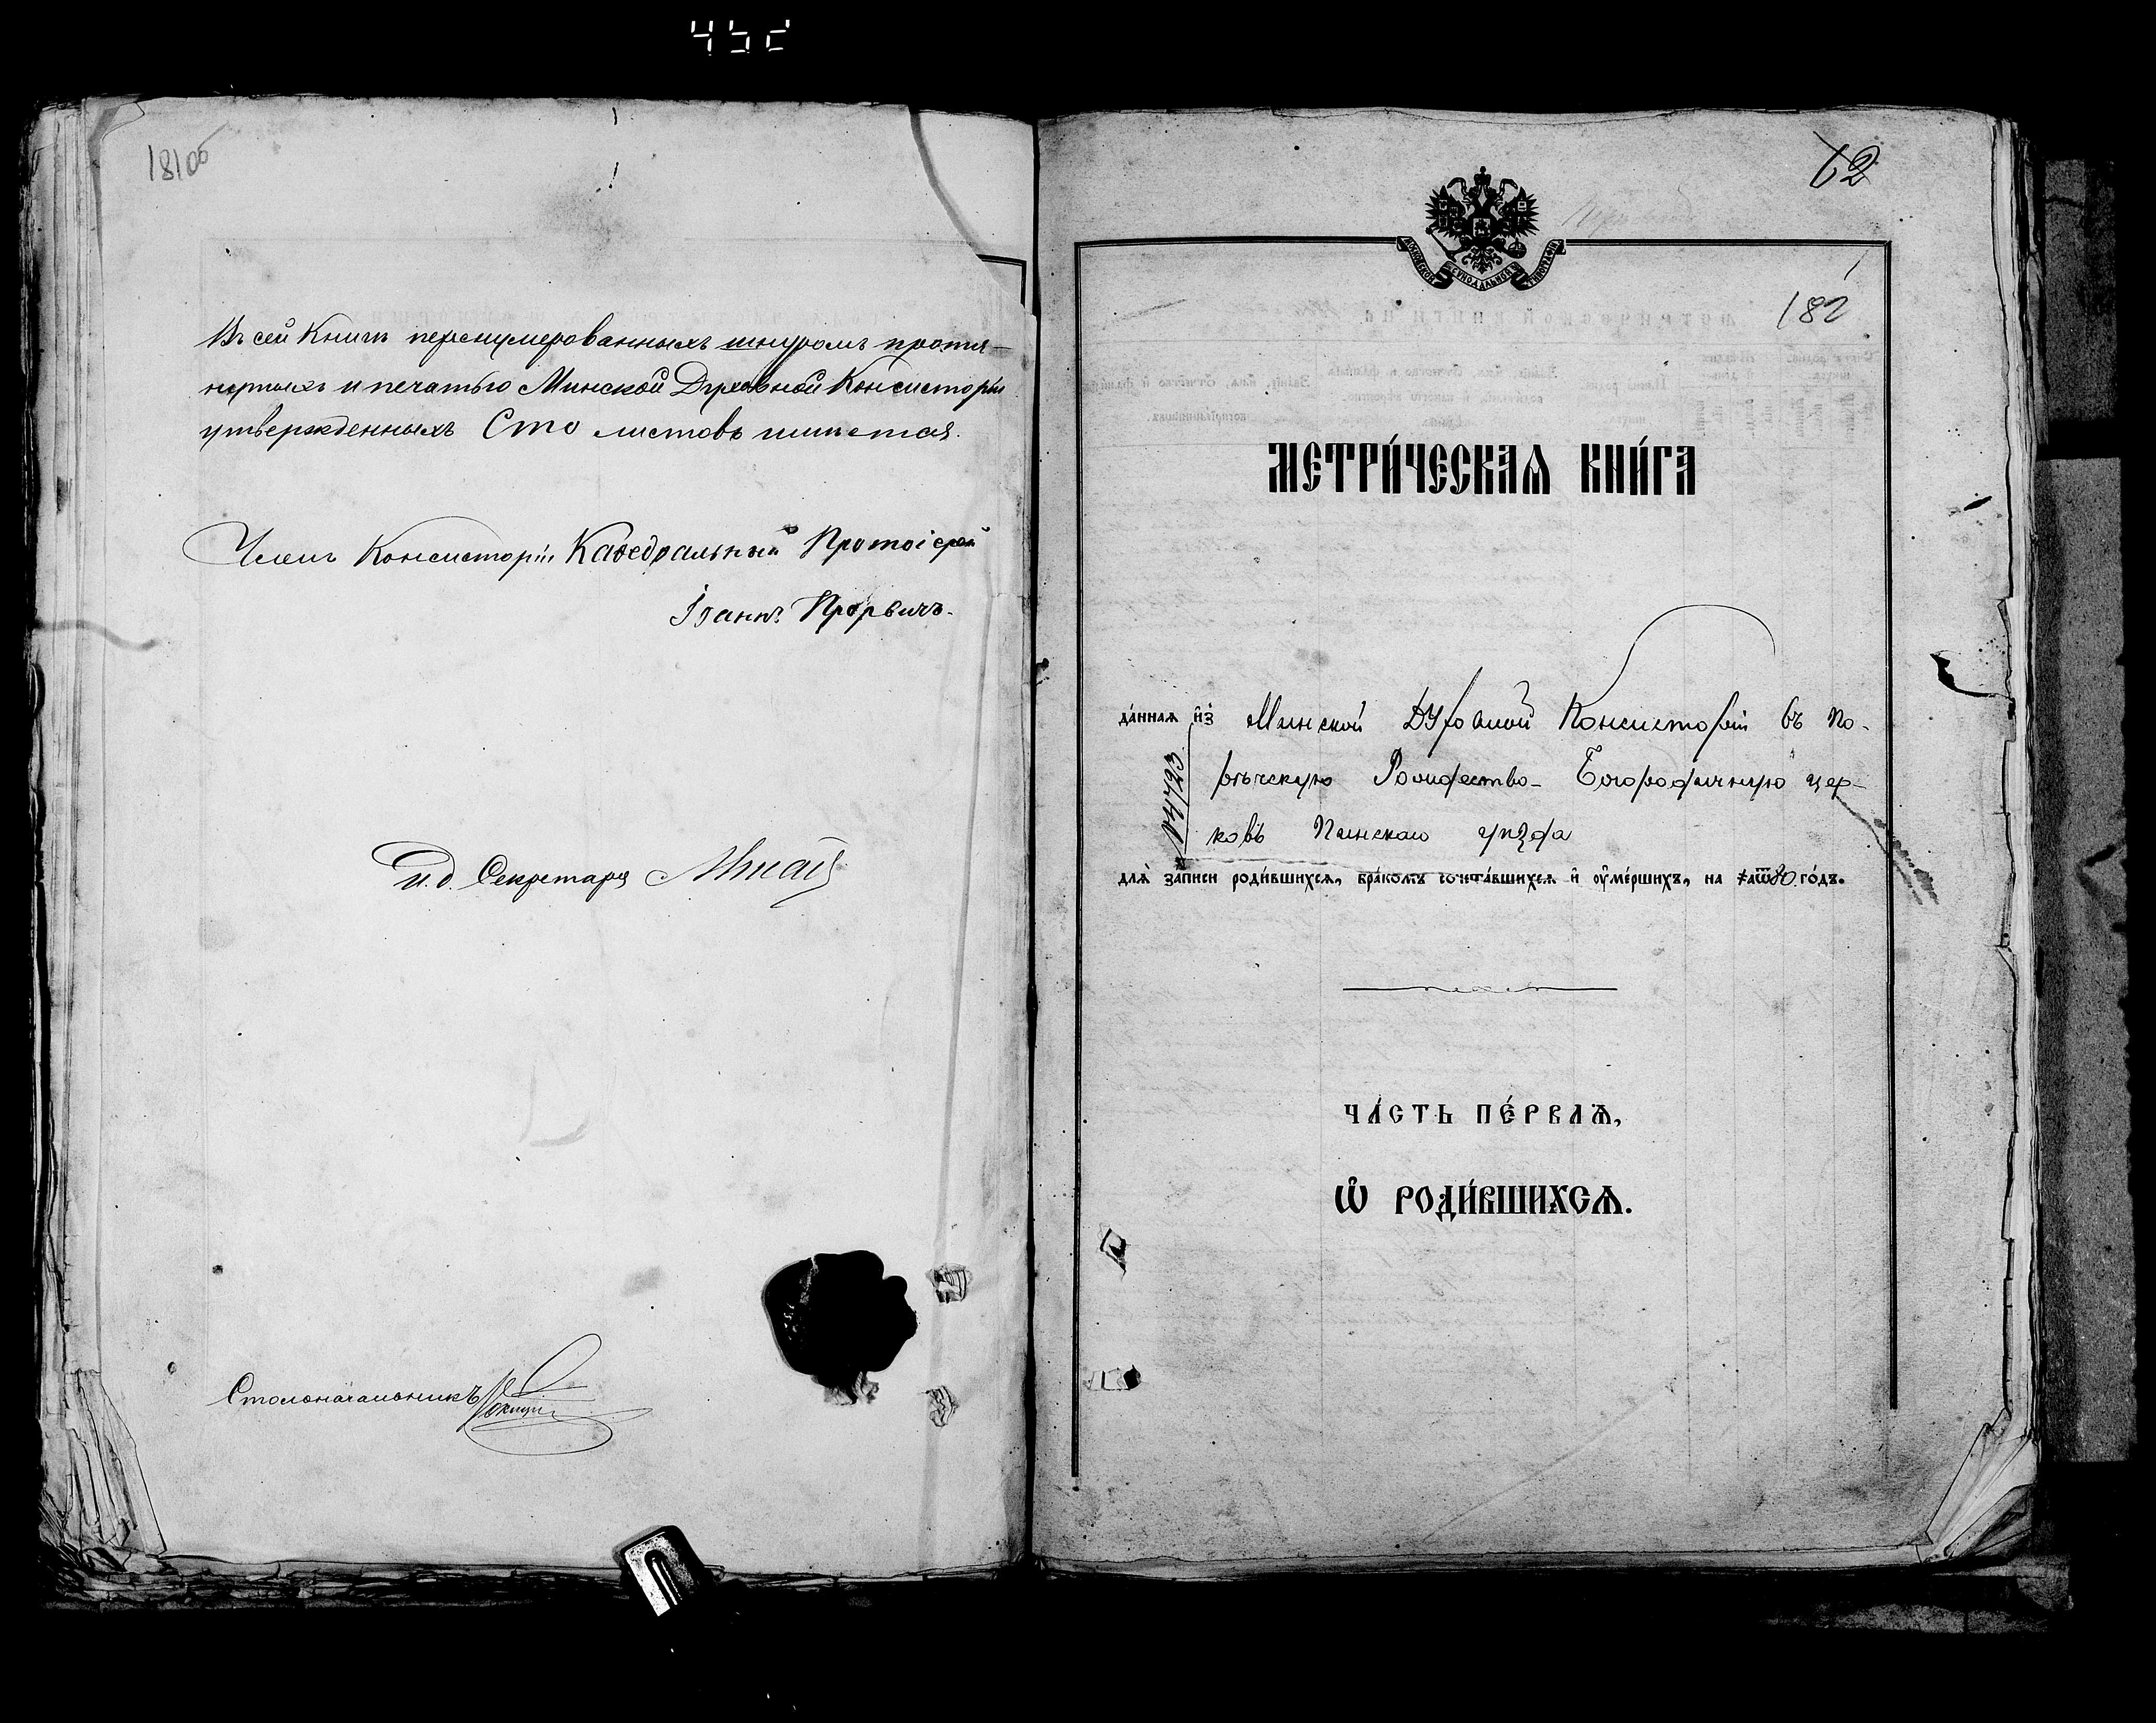 452
181об
Въ сей Книгѣ перенумерованныхъ шнуромъ протя-
нутыхъ и печатью Минской Духовной Консисторіи
утвержденныхъ Сто листовъ имѣется.
Членъ Консисторіи Каѳедральный Протоіерей
Іоаннъ Прорвичъ.
И. д. Секретаря
Столоначальникъ
62
МОСКОВСКОЙ СУНОДАЛЬНОЙ ТИПОГРАФІИ
182
МЕТРИ́ЧЕСКАѦ КНИ́ГА
да́ннаѧ и҆з̾ Минской Духовной Консисторіи въ По-
рѣчскую Рождество-Богородичную цер-
ковь Пинскаго уѣзда
№ 4723
длѧ̀ за́писи роди́вшихсѧ, бра́комъ сочета́вшихсѧ и҆ ᲂу҆ме́ршихъ, на ҂аѿ80 го́дъ.
ЧА́СТЬ ПЕ́РВАѦ,
Ѡ҆ РОДИ́ВШИХСѦ.